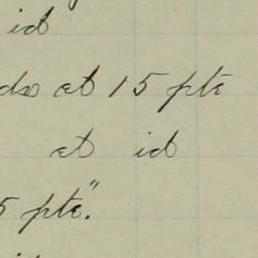 id
do at 15 pts
at id
5 pts."